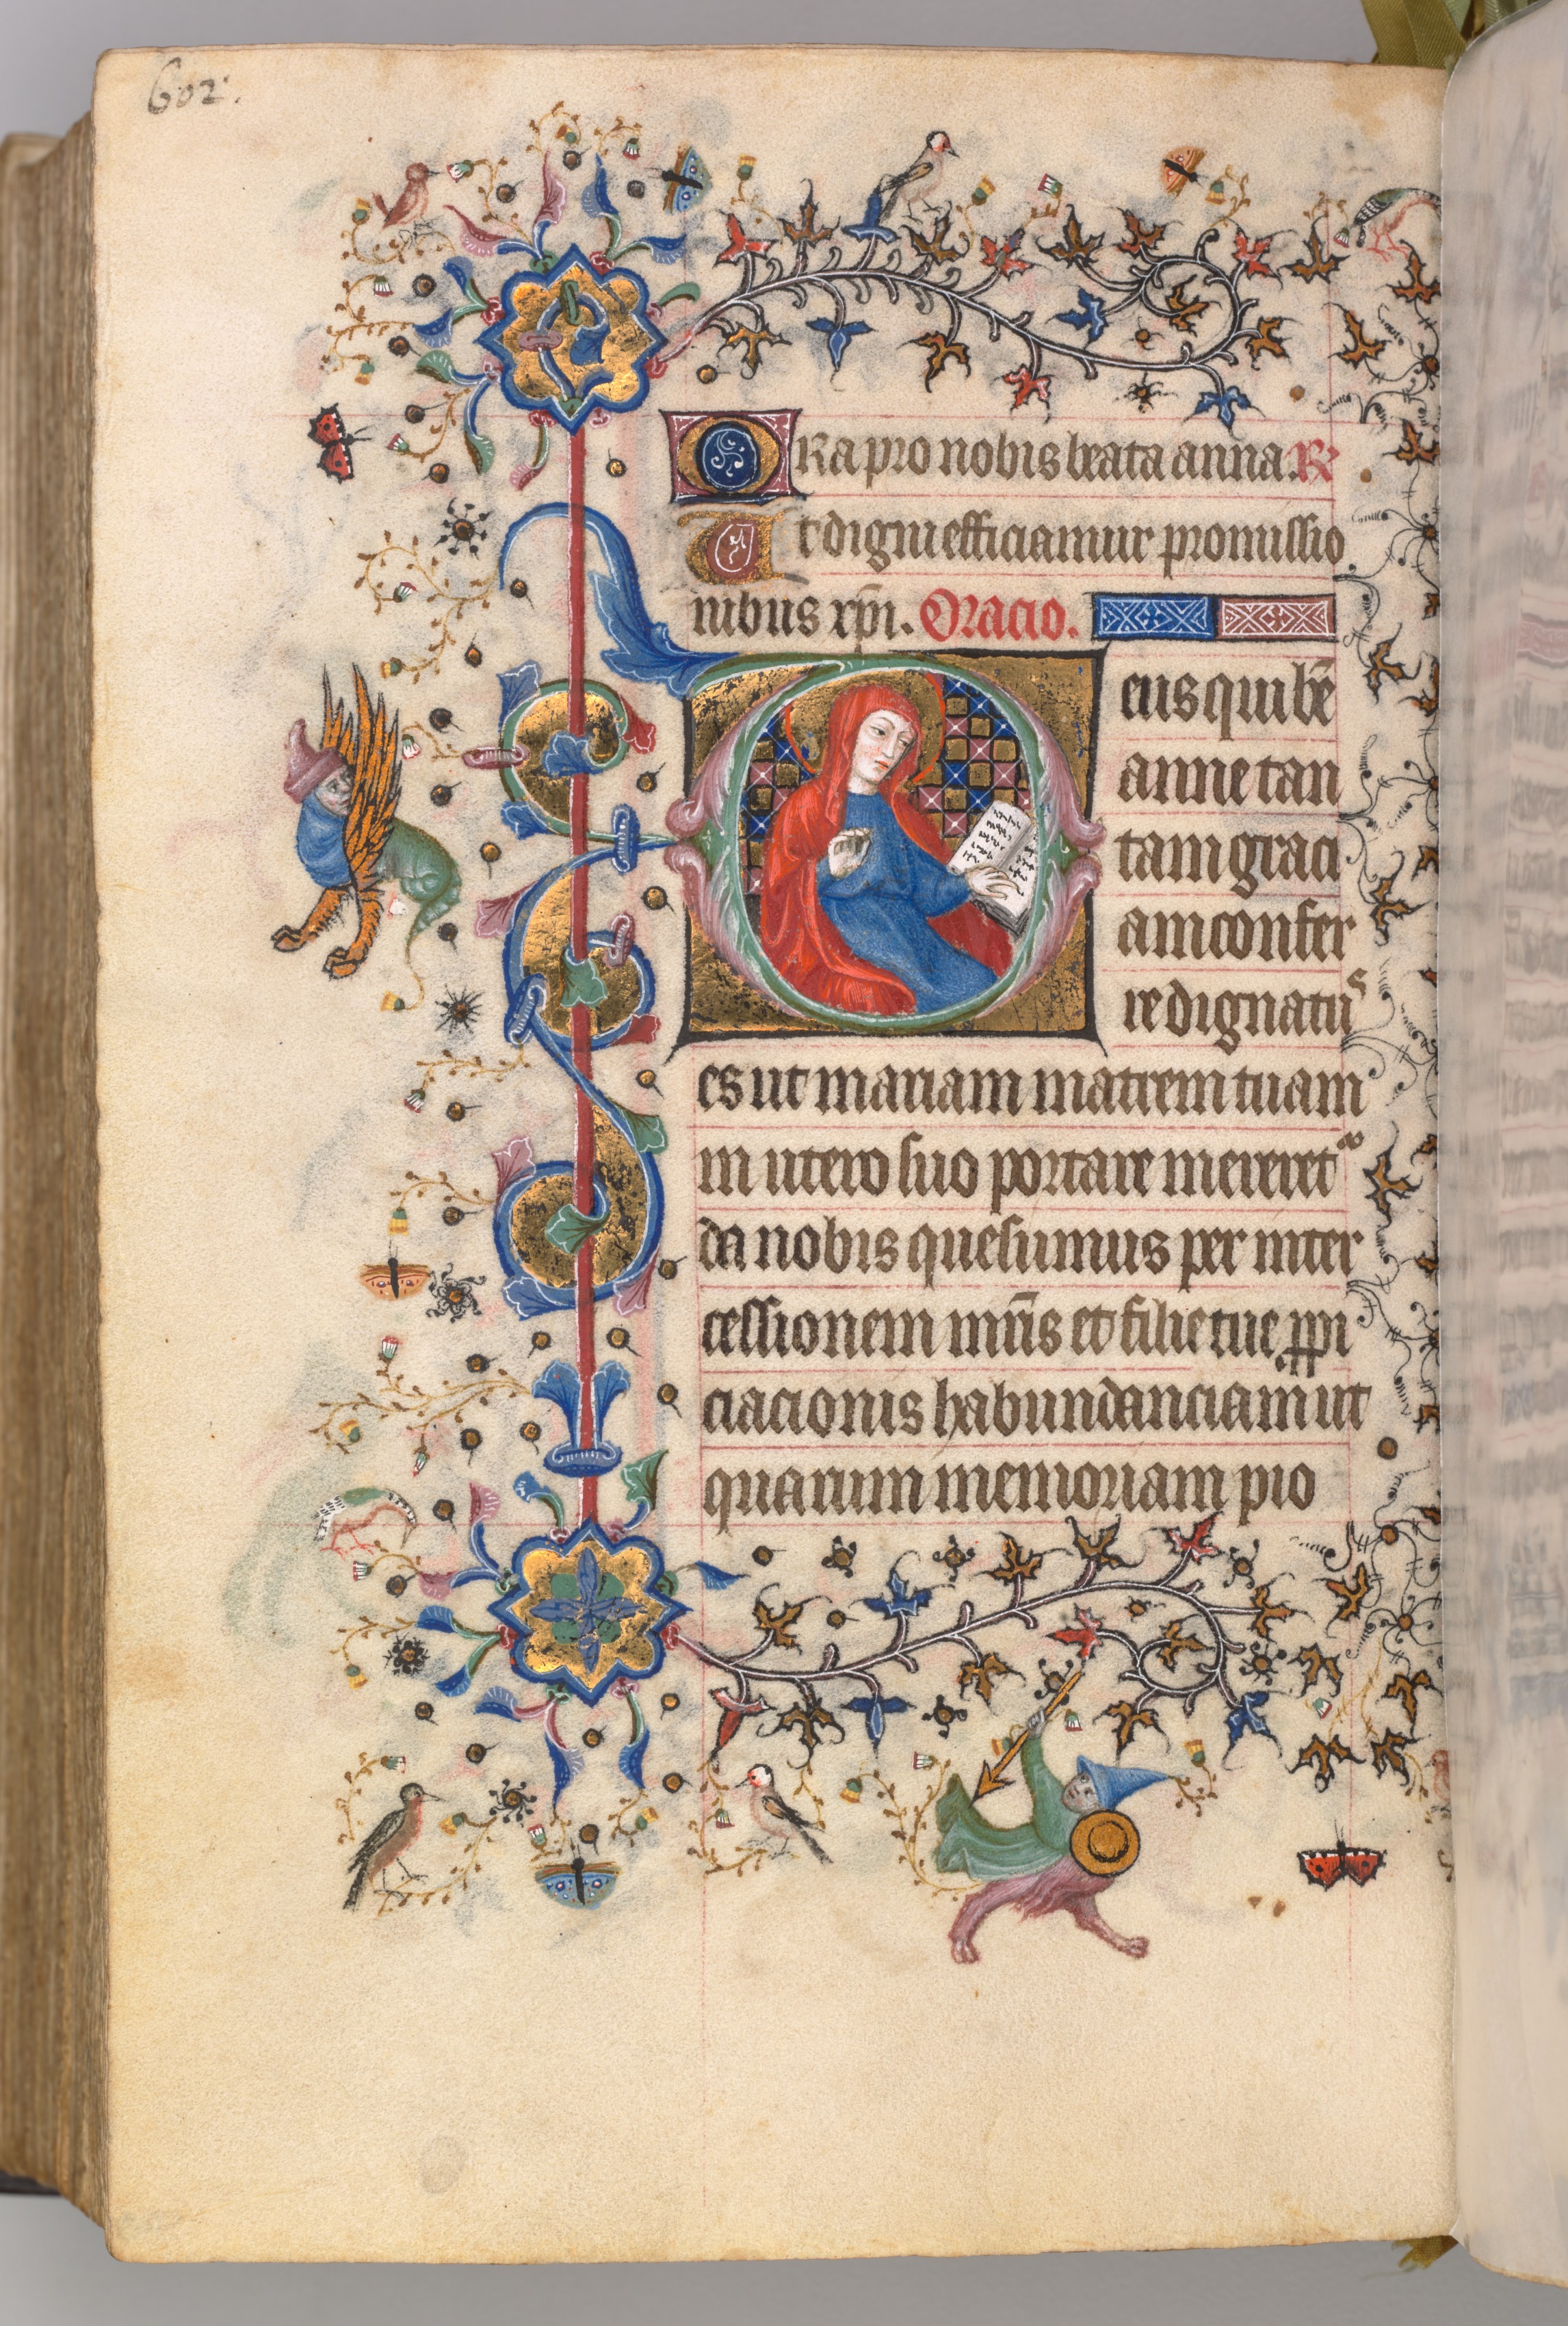 602.
Ora pro nobis beata anna. R
Ut digni efficiamur promissio
nibus xp̄i. Oracio.
Deus qui bē
anne tan
tam graci
am confer
re dignatus
es ut mariam matrem tuam
in utero suo portare meret
da nobis quesumus per inter
cessionem mr̄is et filie tue ꝓpi
ciacionis habundanciam ut
quarum memoriam pio